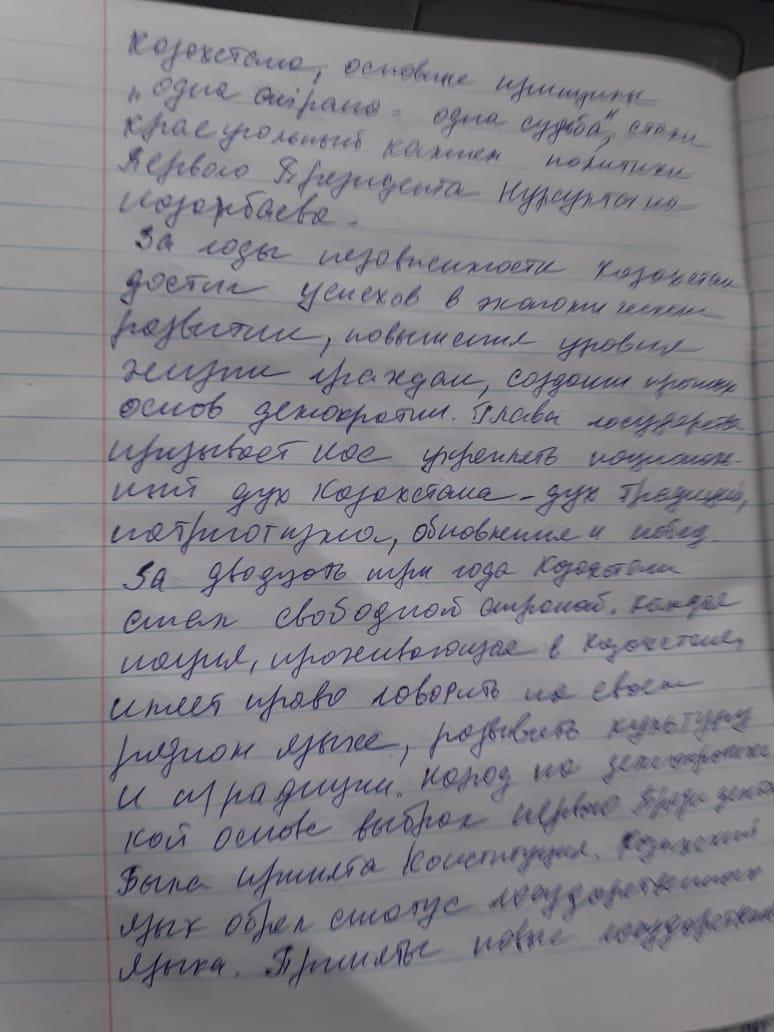 Казахстана, основные принципы
"одна страна - одна судьба", стали
краеугольный камнем политики
Первого Президента Нурсултана
Назарбаева.
За годы независимости Казахстан
достиг успехов в экономическом
развитии, повышения уровня
жизни граждан, создании прочных
основ демократии. Глава государства
призывает нас укреплять националь-
ный дух Казахстана - дух традиций,
патриотизма, обновления и побед.
За двадцать три года Казахстан
стал свободной страной. Каждая
нация, проживающая в Казахстане,
имеет право говорить на своем
родном языке, развивать культуру
и традиции. Народ на демократичес-
кой основе выбрал первого Президента
Была принята Конституция. Казахский
язык обрел статус государственного
языка. Приняты новые государственные